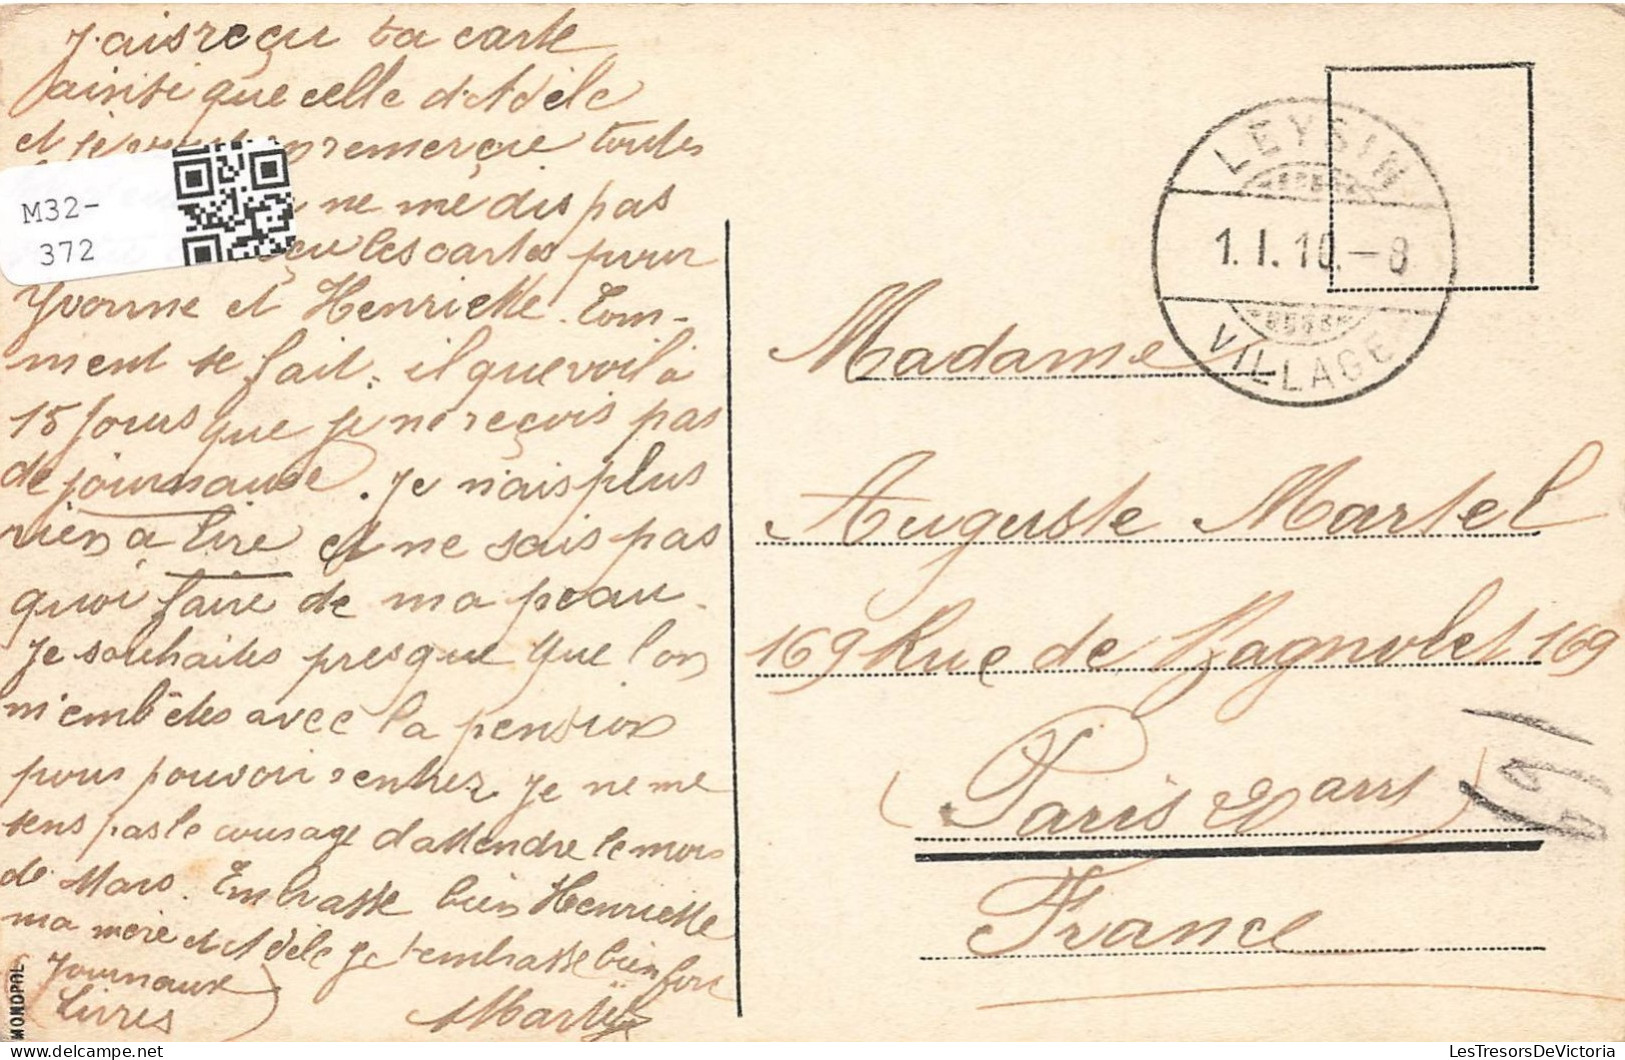 J'ais reçu ta carte
ainsi que celle d'Adèle
et je vous en remerçie toutes
ne me dis pas
çu les cartes pour
Yvonne et Henriette. Com-
ment se fait-il que voilà
15 jours que je ne reçois pas
de journause. Je n'ais plus
rien a lire et ne sais pas
quoi faire de ma peau.
Je souhaites presque que l'on
m'embêtes avec la pension
pour pouvoir rentrer. Je ne me
sens pas le courage d'attendre le mois
de Mars. Embrasse bien Henriette
ma mère et Adèle je t'embrasse bien fort
(Journaux
Livres)
MONOPOL
M32-
372
LEYSIN
1.I.10.-8
VILLAGE
Madame
Auguste Martel
169 Rue de Bagnolet 169
(Paris 20 arrt)
France
LesTresorsDeVictoria